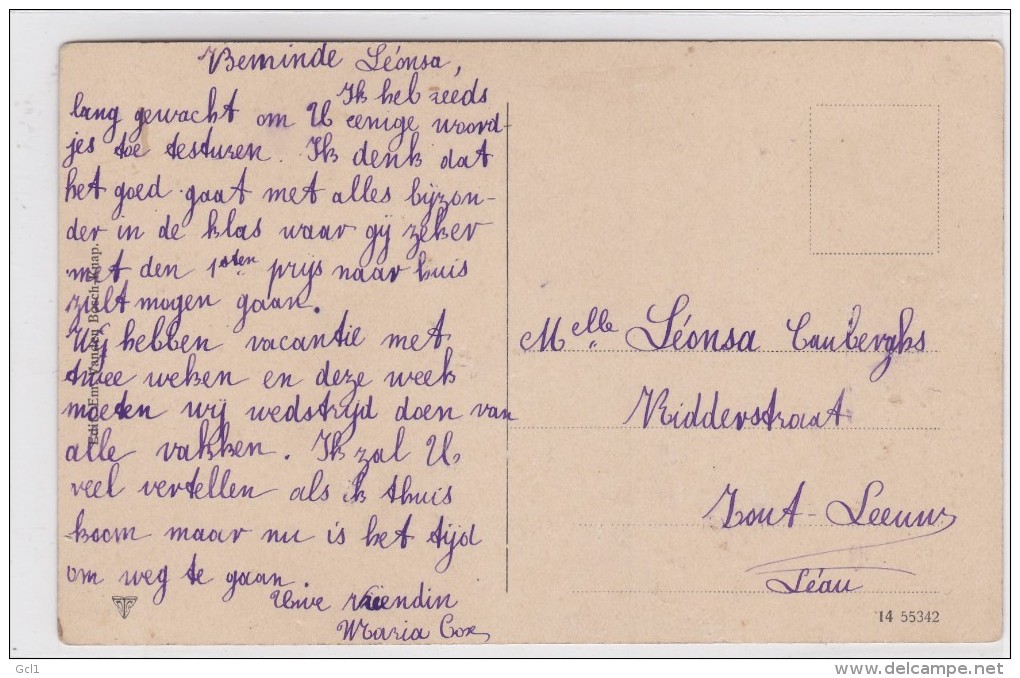 Beminde Léonsa,
Ik heb reeds
lang gewacht om U eenige woord-
jes toe testuren. Ik denk dat
het goed gaat met alles bijzon-
der in de klas waar gij zeker
met den 1sten prijs naar huis
zult mogen gaan.
Wij hebben vacantie met
twee weken en deze week
moeten wij wedstrijd doen van
alle vakken. Ik zal U
veel vertellen als ik thuis
koom maar nu is het tijd
om weg te gaan.
Uwe vriendin
Maria Cox
Edit. Em. Vanden Bosch-Knap.
Melle Léonsa Cauberghs
Ridderstraat
Zout-Leeuw
Léau
14 55342
Gcl1
www.delcampe.net